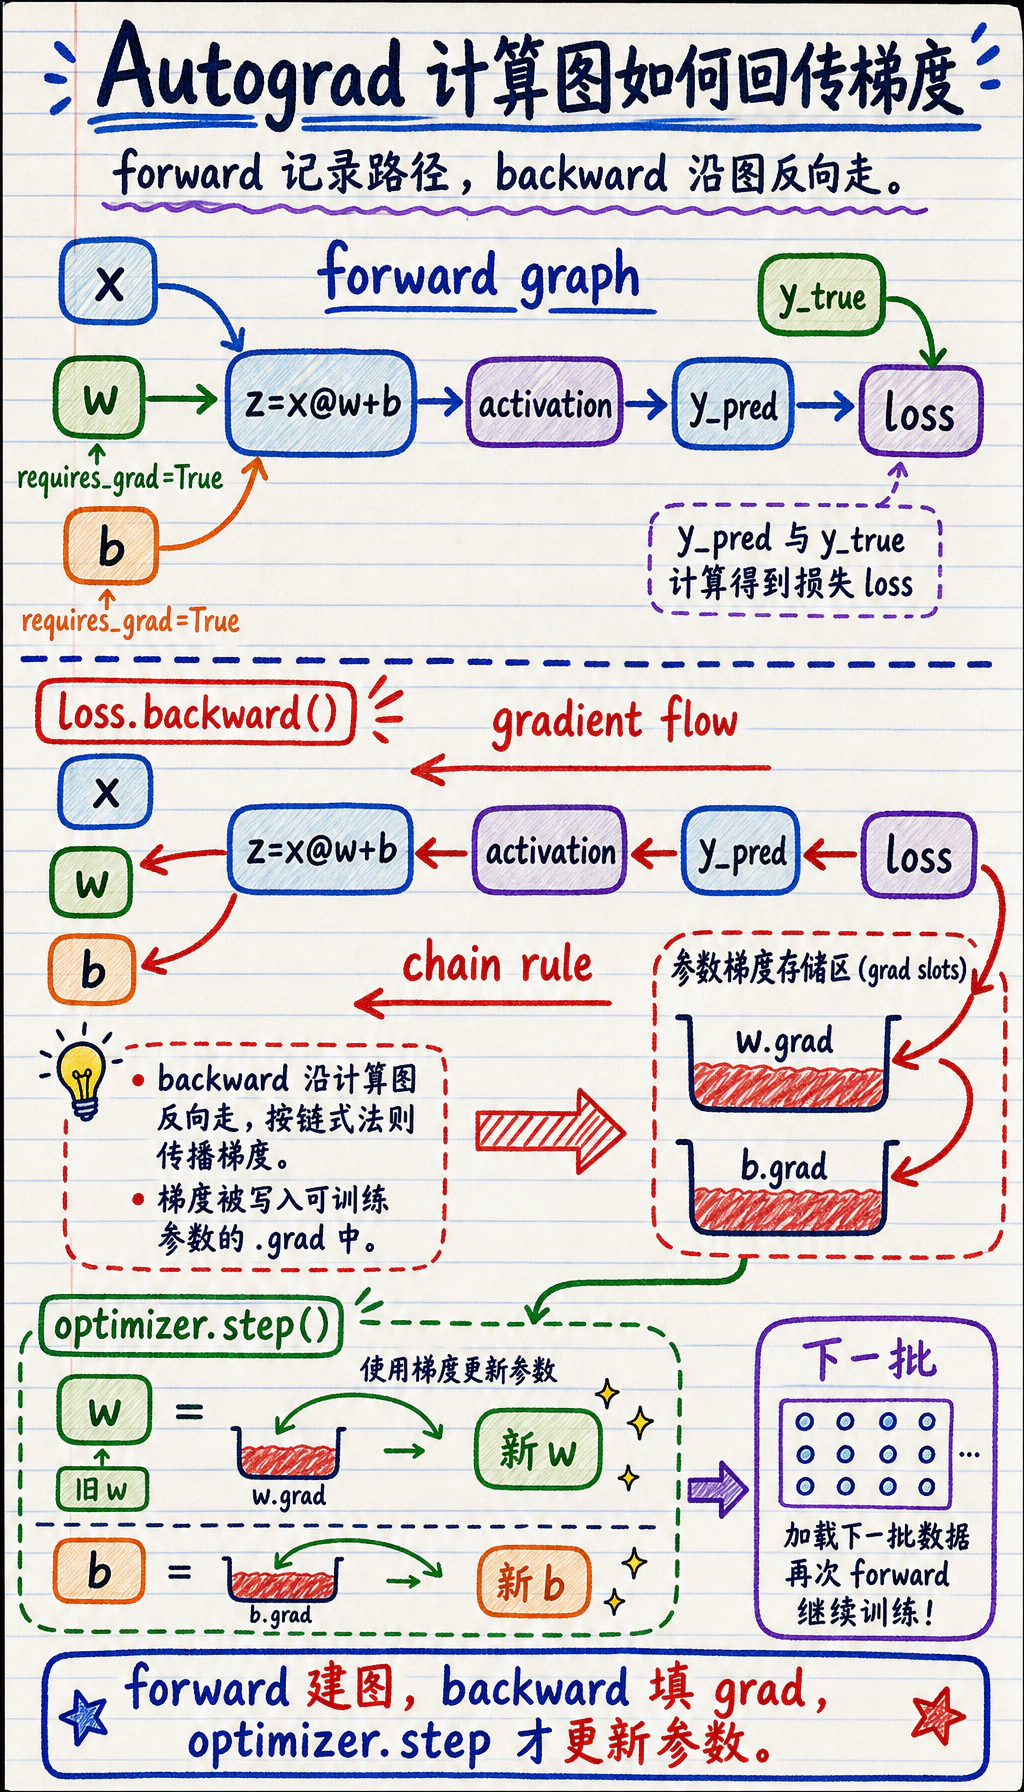 Autograd 计算图如何回传梯度
forward 记录路径，backward 沿图反向走。
forward graph
x
y_true
w
z=x@w+b
activation
y_pred
loss
requires_grad=True
b
requires_grad=True
y_pred 与 y_true
计算得到损失 loss
loss.backward()
gradient flow
x
w
z=x@w+b
activation
y_pred
loss
b
chain rule
参数梯度存储区 (grad slots)
w.grad
b.grad
• backward 沿计算图
反向走，按链式法则
传播梯度。
• 梯度被写入可训练
参数的 .grad 中。
optimizer.step()
使用梯度更新参数
w
=
旧 w
w.grad
新 w
b
=
b.grad
新 b
下一批
...
加载下一批数据
再次 forward
继续训练！
forward 建图，backward 填 grad，
optimizer.step 才更新参数。